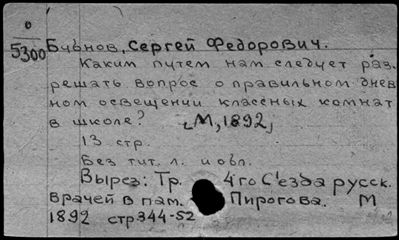 0
5300
Бубнов, Сергей Федорович.
Каким путем нам следует раз.
решать вопрос о правильном днев
ном освещении классных комнат
в школе? [М, 1892]
13 стр.
Без тит. л. и обл.
Вырез: Тр. 4го С'езда русск.
Врачей в пам. Пирогова. М
1892 стр 344-52